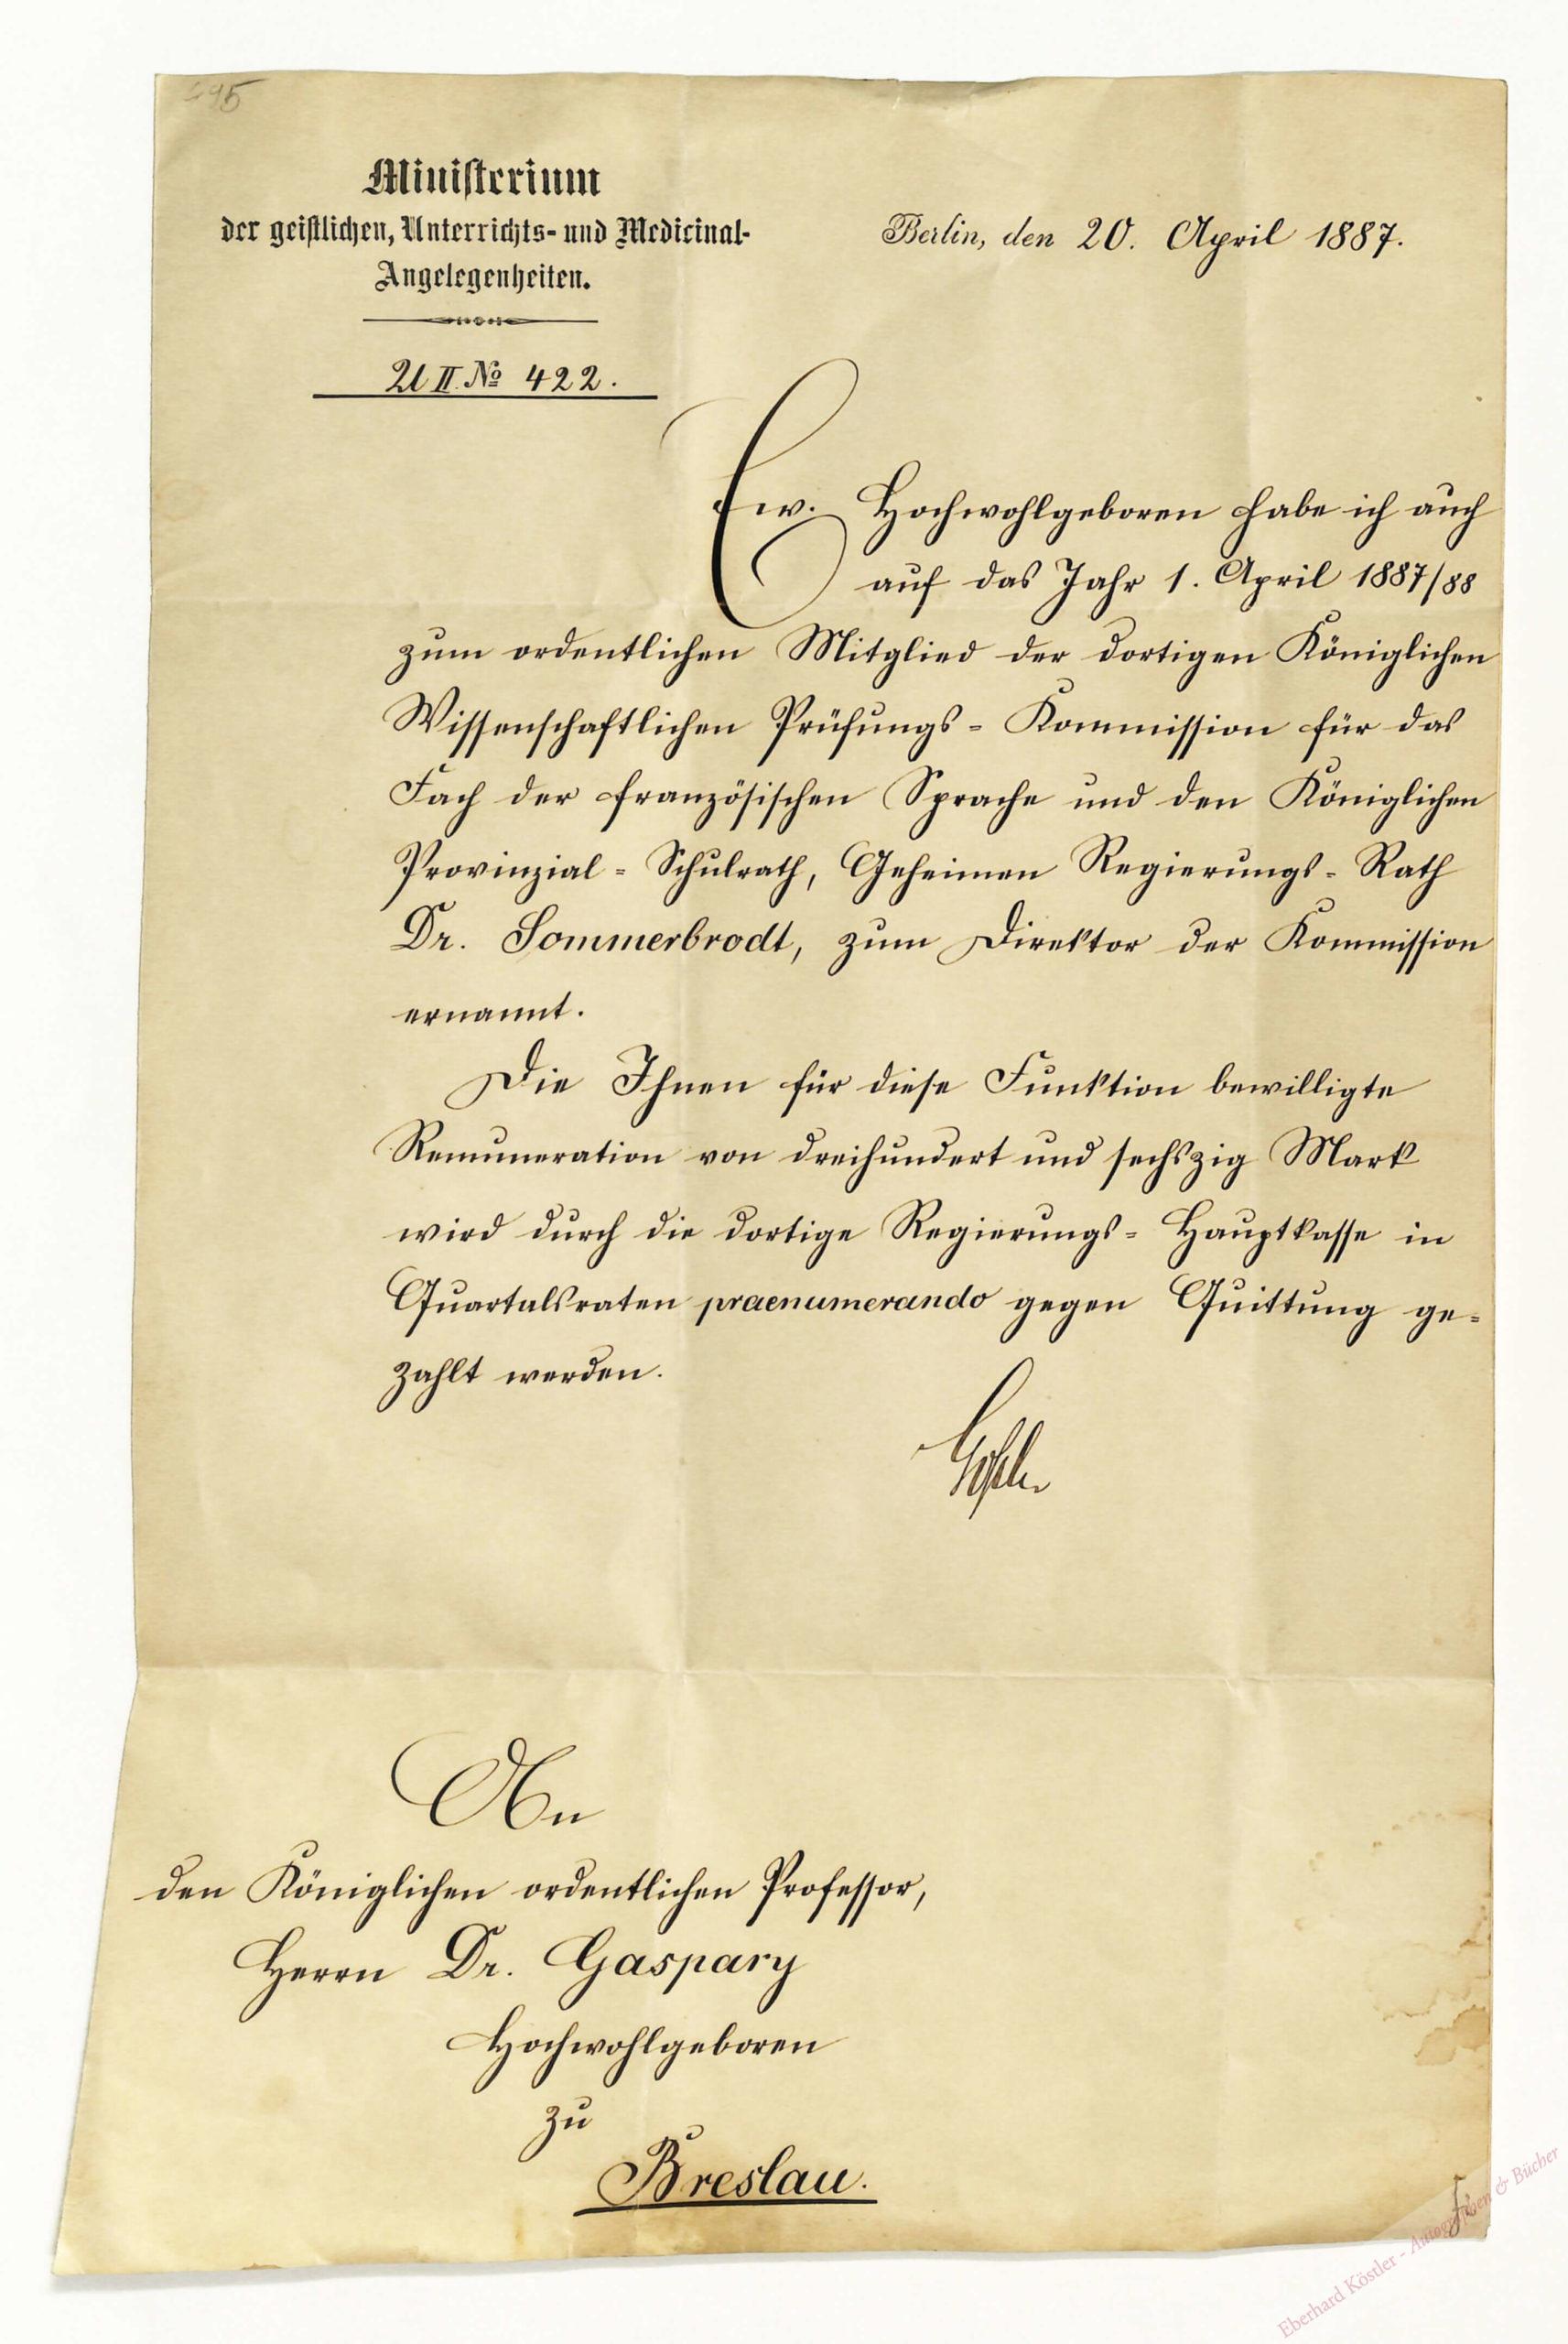 Ministerium
der geistlichen, Unterrichts- und Medicinal-
Angelegenheiten.
Berlin, den 20. April 1887.
U II. No 422.
Ew. Hochwohlgeboren habe ich auch
auf das Jahr 1. April 1887/88
zum ordentlichen Mitglied der dortigen Königlichen
Wissenschaftlichen Prüfungs-Kommission für das
Fach der französischen Sprache und den Königlichen
Provinzial-Schulrath, Geheimen Regierungs-Rath
Dr. Sommerbrodt, zum Direktor der Kommission
ernannt.
Die Ihnen für diese Funktion bewilligte
Remuneration von dreihundert und sechszig Mark
wird durch die dortige Regierungs-Hauptkasse in
Quartalsraten praenumerando gegen Quittung ge-
zahlt werden.
Goßler
An
den Königlichen ordentlichen Professor,
Herrn Dr. Gaspary
Hochwohlgeboren
zu
Breslau.
Eberhard Köstler - Autographen & Bücher